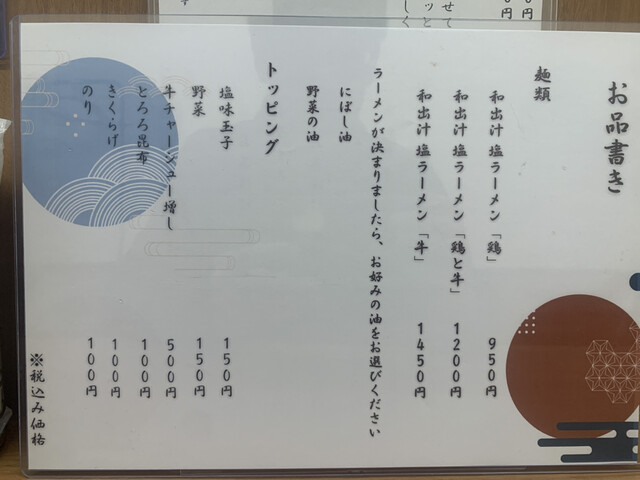 お品書き
麺類
和出汁 塩ラーメン「鶏」 950円
和出汁 塩ラーメン「鶏と牛」 1200円
和出汁 塩ラーメン「牛」 1450円
ラーメンが決まりましたら、お好みの油をお選びください
にぼし油
野菜の油
トッピング
塩味玉子 150円
野菜 150円
牛チャーシュー増し 500円
とろろ昆布 100円
きくらげ 100円
のり 100円
※税込み価格